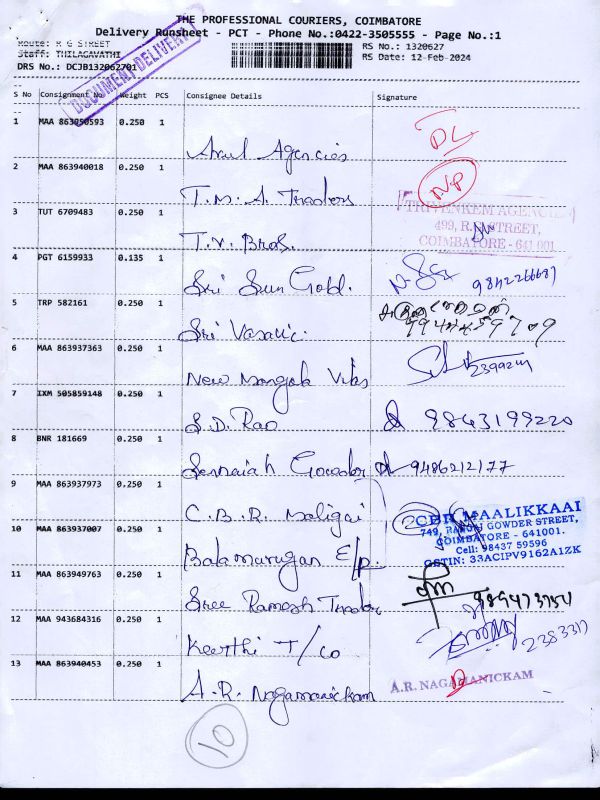 THE PROFESSIONAL COURIERS, COIMBATORE
Delivery Runsheet - PCT - Phone No.:0422-3505555 - Page No.:1
Route: R G STREET
RS No.: 1320627
Staff: THILAGAVATHI
RS Date: 12-Feb-2024
DRS No.: DCJB132062701
DOCUMENT DELIVERY
S No Consignment No Weight PCS Consignee Details Signature
1 MAA 863950593 0.250 1
Arul Agencies
DL
2 MAA 863940018 0.250 1
T.M.A. Traders
NP
3 TUT 6709483 0.250 1
T.V. Bros.
TRIVENKEM AGENCIES
499, R.G. STREET,
COIMBATORE - 641 001
4 PGT 6159933 0.135 1
Sri Sun Gold.
9842266687
5 TRP 582161 0.250 1
Sri Vasavi
6 MAA 863937363 0.250 1
New Mangal Vilas
7 IXM 505859148 0.250 1
S.D. Rao
9843199220
8 BNR 181669 0.250 1
Sennaiah Gowder
9486212177
9 MAA 863937973 0.250 1
C.B.R. Maligai
2
CBR MAALIKKAAI
749, RANGAI GOWDER STREET,
COIMBATORE - 641001.
Cell: 98437 59596
GSTIN: 33ACIPV9162A1ZK
10 MAA 863937007 0.250 1
Balamurugan E/p.
11 MAA 863949763 0.250 1
Sree Ramesh Trader
12 MAA 943684316 0.250 1
Keerthi T/co
2383317
13 MAA 863940453 0.250 1
A.R. Nagamanickam
A.R. NAGAMANICKAM
10